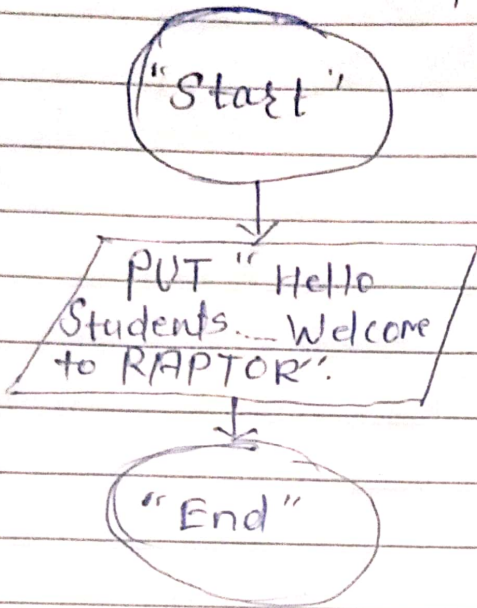 "Start"
PUT "Hello
Students.... Welcome
to RAPTOR".
"End"